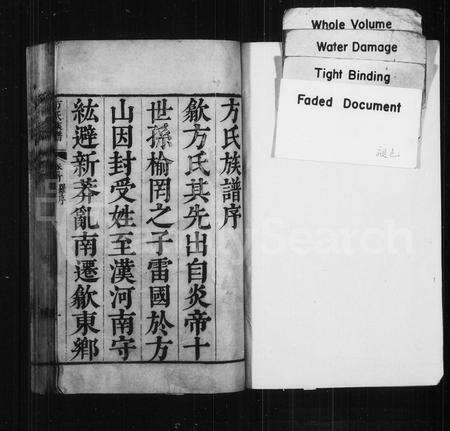 Whole Volume
Water Damage
Tight Binding
Faded Document
褪色
方氏族譜序
歙方氏其先出自炎帝十
世孫榆罔之子雷國於方
山因封受姓至漢河南守
紘避新莽亂南遷歙東鄉
方氏族譜
FamilySearch